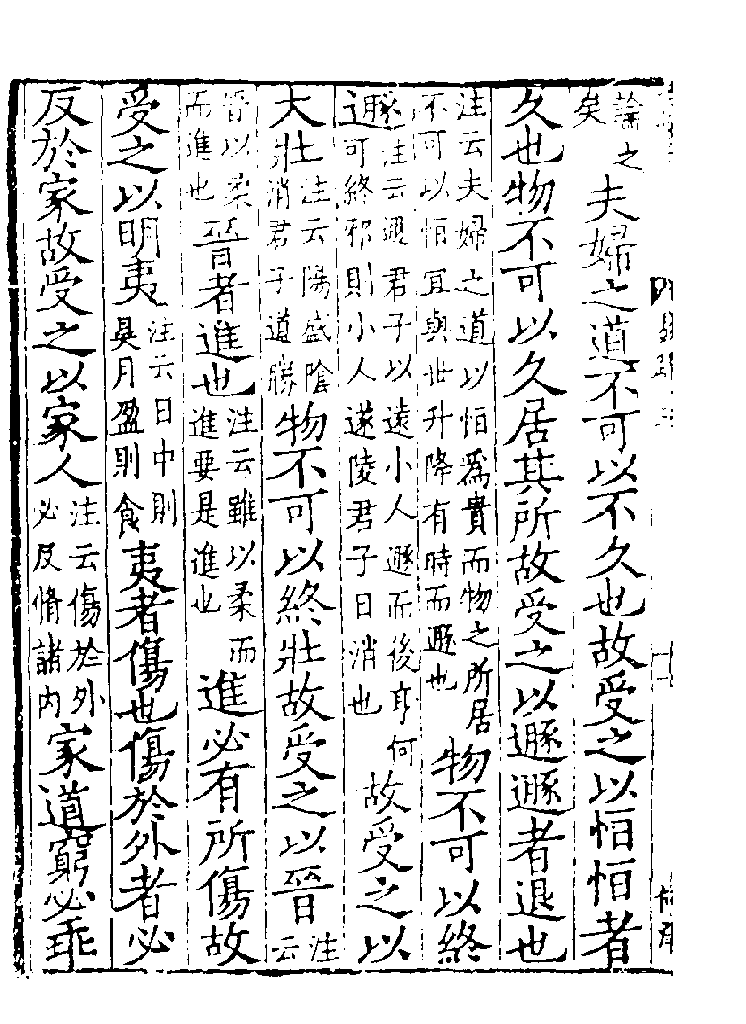 論之矣夫婦之道不可以不久也故受之以恒恒者
久也物不可以久居其所故受之以遯遯者退也
注云夫婦之道以恒爲貴而物之所居不可以恒宜與世升降有時而遯也物不可以終
遯注云遯君子以遠小人遯而後亨何可終邪則小人遂陵君子日消也故受之以
大壯注云陽盛陰消君子道勝物不可以終壯故受之以晉注云
晉以柔而進也晉者進也注云雖以柔而進要是進也進必有所傷故
受之以明夷注云日中則昃月盈則食夷者傷也傷於外者必
反於家故受之以家人注云傷於外必反脩諸内家道窮必乖